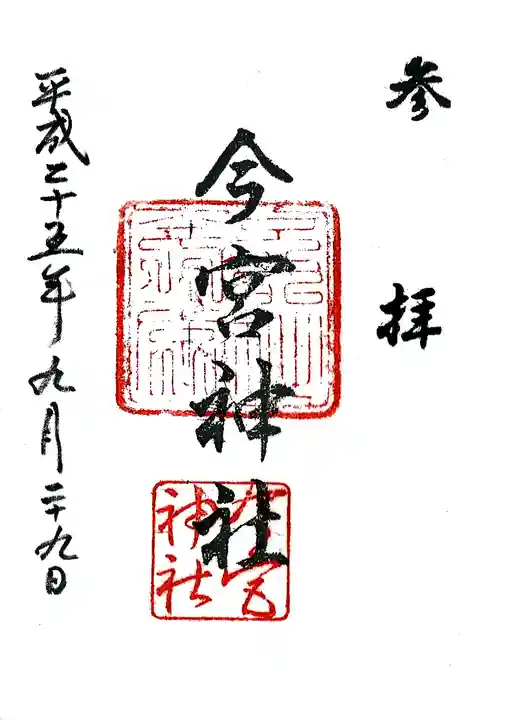 参拝
今宮神社
今宮神社
平成二十五年九月二十九日